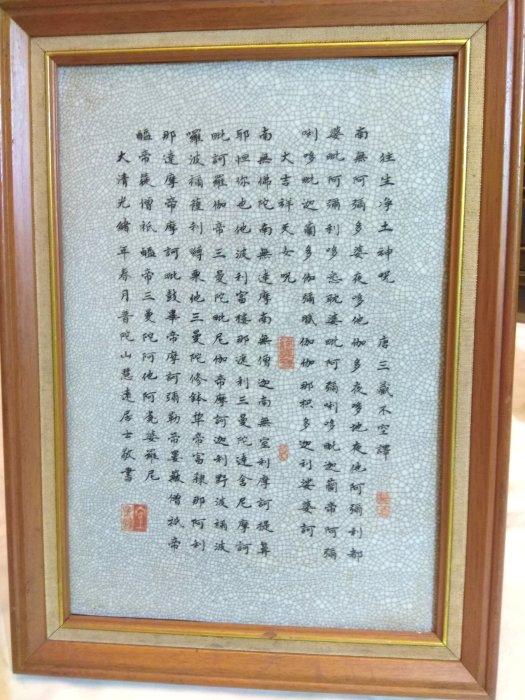 往生淨土神呪 唐三藏不空譯
南無阿彌多婆夜哆他伽多夜哆地夜他阿彌利都
婆毗阿彌利哆悉耽婆毗阿彌唎哆毗迦蘭帝阿彌
唎哆毗迦蘭多伽彌膩伽伽那枳多迦利娑婆訶
大吉祥天女呪
南無佛陀南無達摩南無僧迦南無室利摩訶提鼻
耶怛你也他波利富樓那遮利三曼陀達舍尼摩訶
毗訶羅伽帝三曼陀毗尼伽帝摩訶迦利野波禰波
囉波禰薩利嚩栗他三曼陀修鉢犂帝富隸那阿利
那達摩帝摩訶毗鼓畢帝摩訶彌勒帝婁簸僧祇帝
醯帝簁僧祇醯帝三曼陀阿他阿㝹婆羅尼
大清光緒年春月普陀山慧遠居士敬書